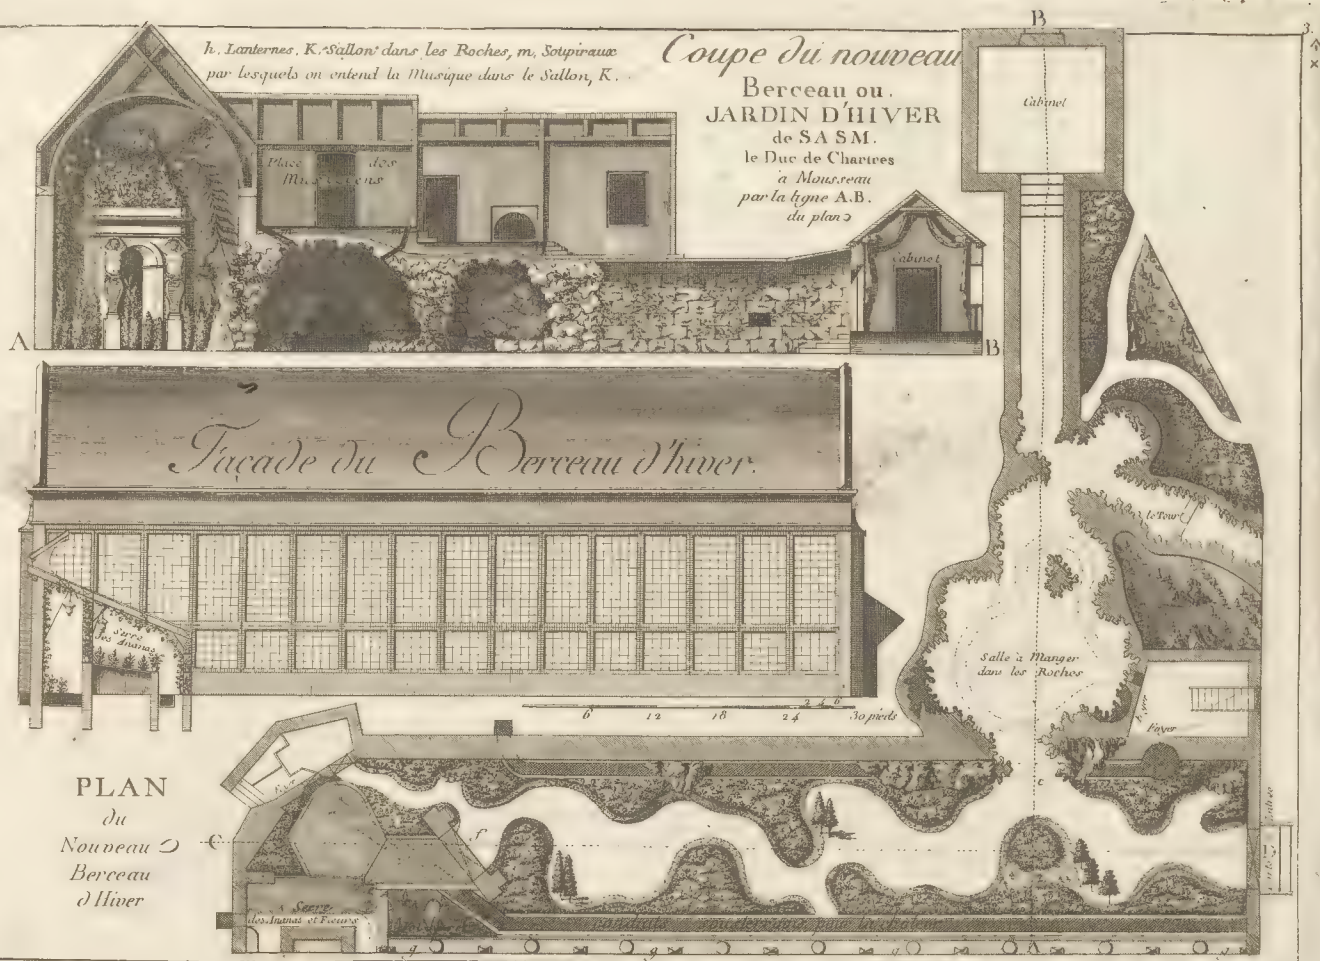 3.
h. Lanternes. K. Sallon dans les Roches, m. Soupiraux
par lesquels on entend la Musique dans le Sallon, K.
Coupe du nouveau
Berceau ou.
JARDIN D'HIVER
de SASM.
le Duc de Chartres
a Mousseau
par la ligne A.B.
du plan
B
Cabinet
Place des
Musiciens
Cabinet
A
B
Façade du Berceau d'hiver.
le Tour
Serre
des Ananas
Salle à Manger
dans les Roches
6 12 18 24 30 pieds
2 4 6
Foyer
PLAN
du
Nouveau
Berceau
d'Hiver
C
f
c
Entrée
Serre
des Ananas et Fleurs
conduits souterrains pour la chaleur
g
g
g
A
g